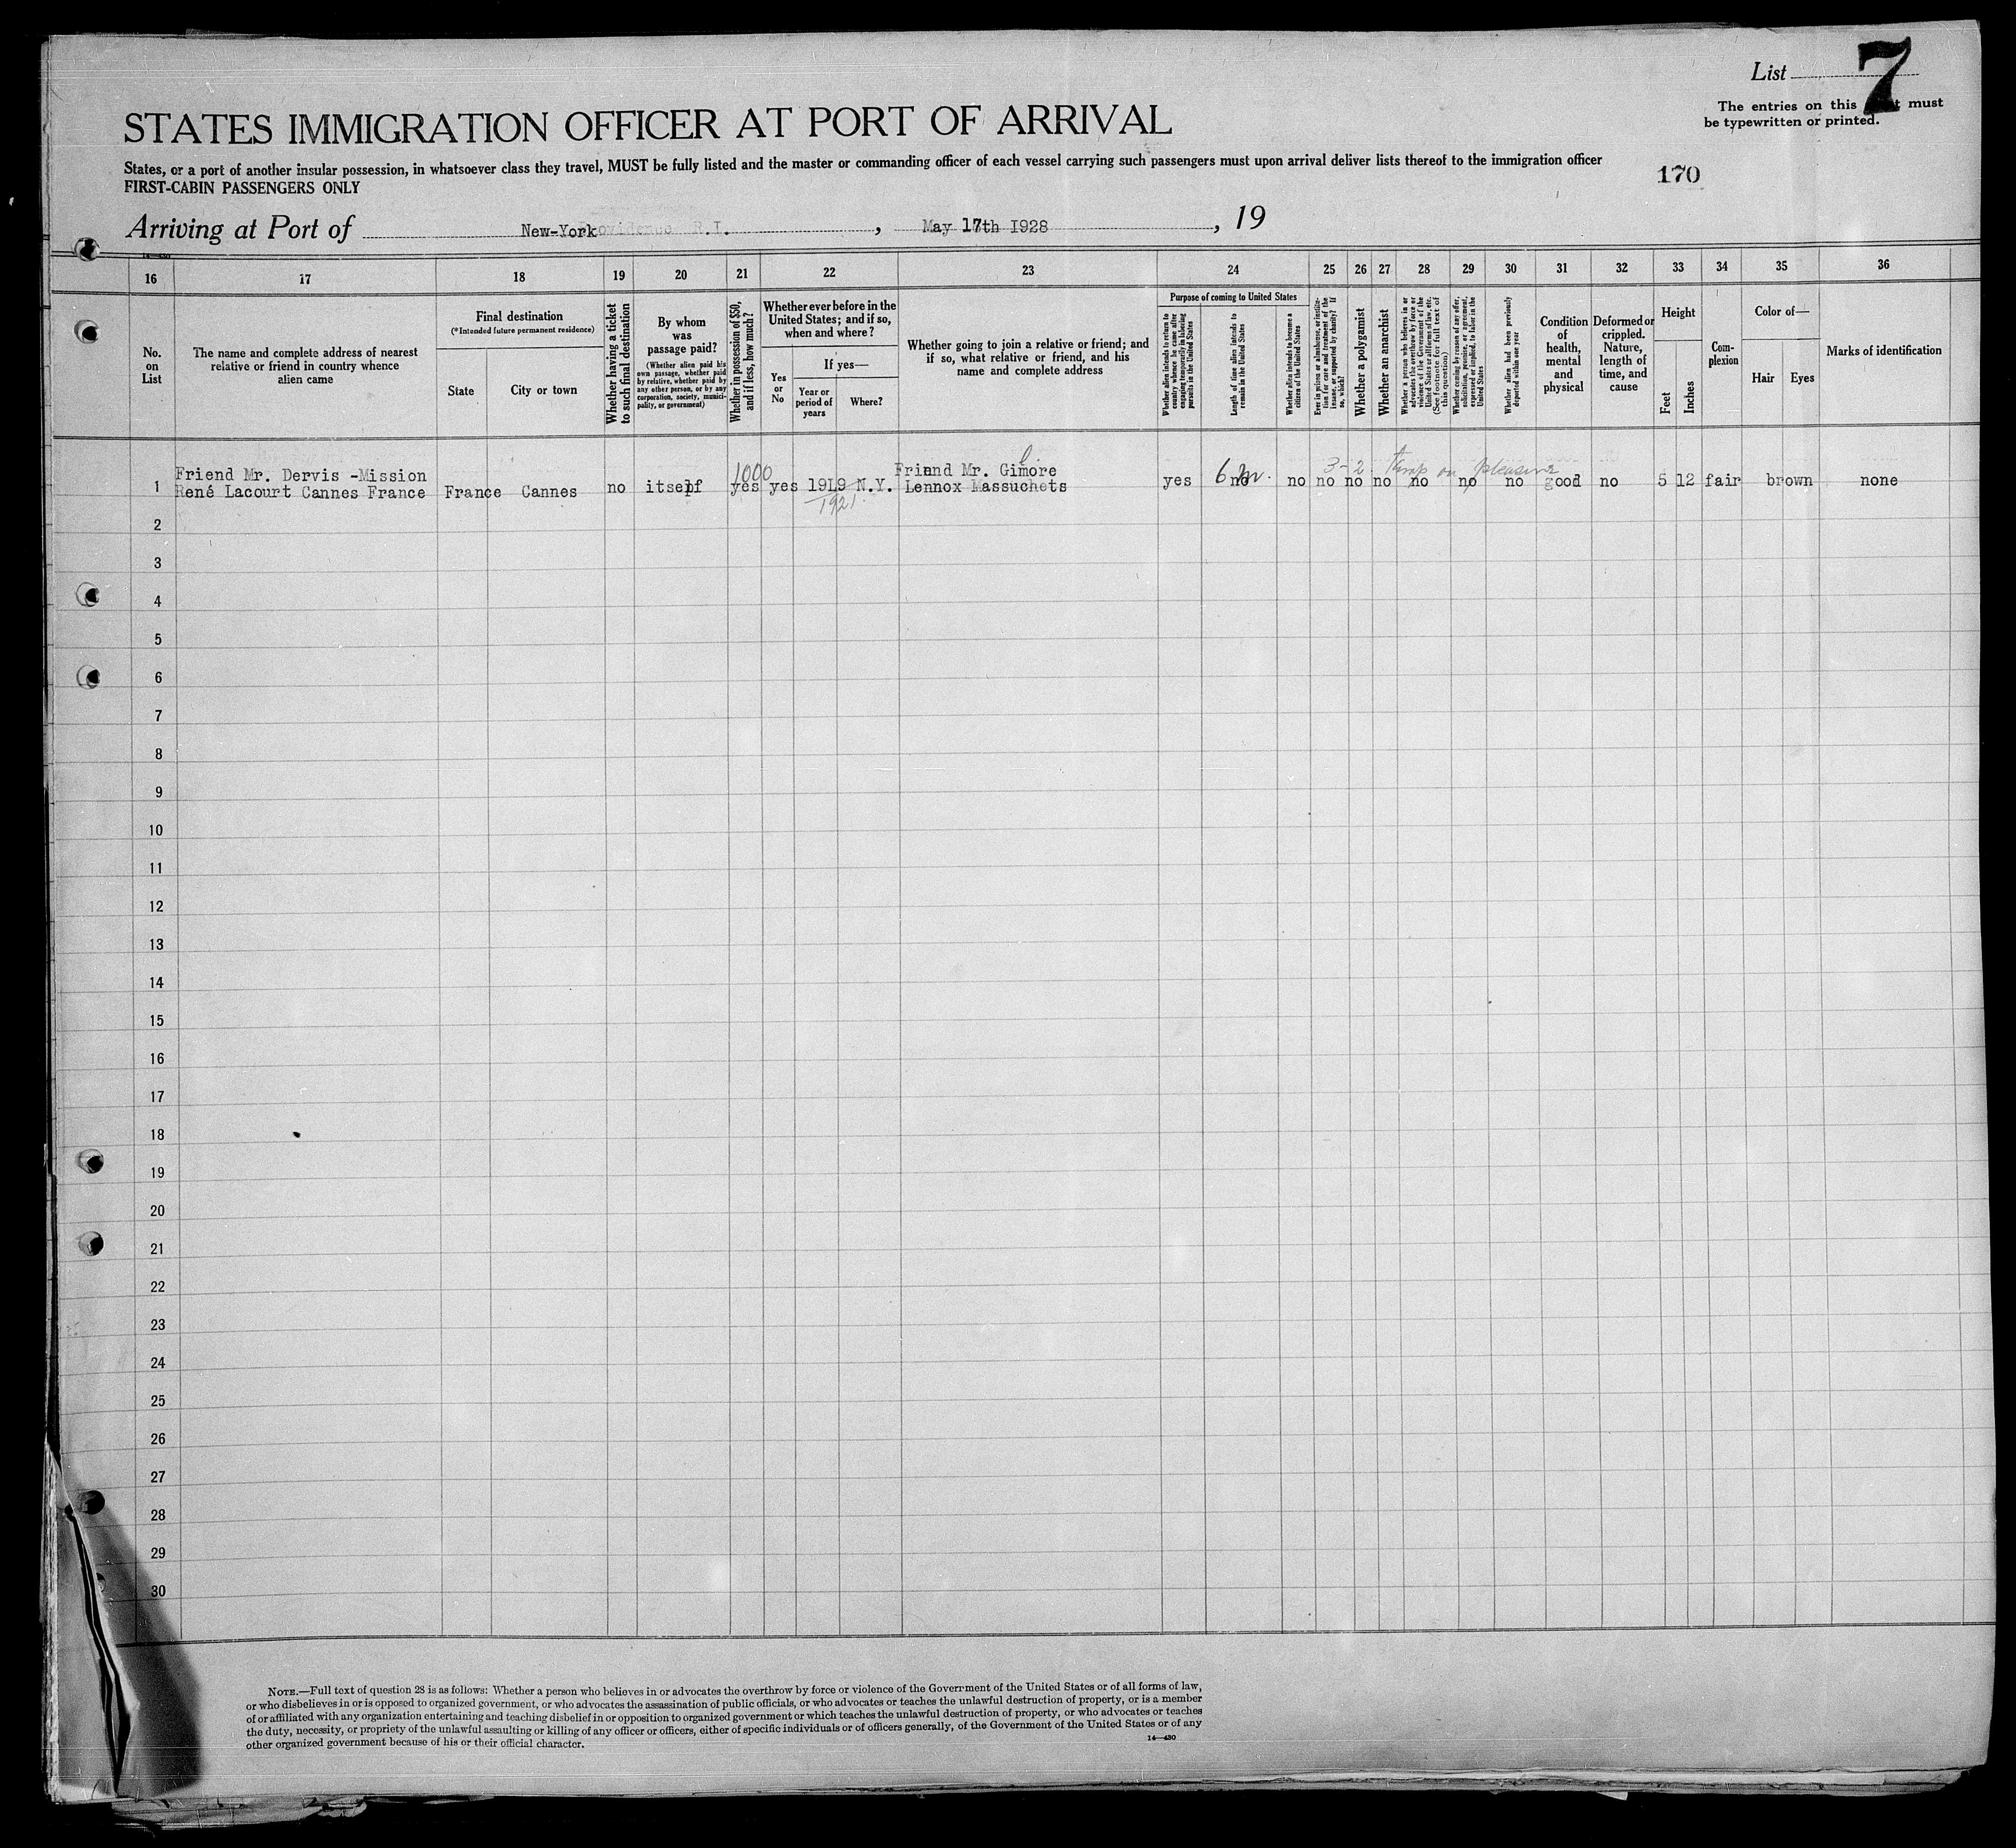 List 7
The entries on this must
be typewritten or printed.
STATES IMMIGRATION OFFICER AT PORT OF ARRIVAL
States, or a port of another insular possession, in whatsoever class they travel, MUST be fully listed and the master or commanding officer of each vessel carrying such passengers must upon arrival deliver lists thereof to the immigration officer
FIRST-CABIN PASSENGERS ONLY
170
Arriving at Port of New-York R.I. , May 17th 1928 , 19
16 17 18 19 20 21 22 23 24 25 26 27 28 29 30 31 32 33 34 35 36
No. on List
The name and complete address of nearest relative or friend in country whence alien came
Final destination
(*Intended future permanent residence)
State
City or town
Whether having a ticket to such final destination
By whom was passage paid?
(Whether alien paid his own passage, whether paid by relative, whether paid by any other person, or by any corporation, society, municipality, or government)
Whether in possession of $50, and if less, how much?
Whether ever before in the United States; and if so, when and where?
Yes or No
If yes—
Year or period of years
Where?
Whether going to join a relative or friend; and if so, what relative or friend, and his name and complete address
Purpose of coming to United States
Whether alien intends to return to country whence he came after engaging temporarily in laboring pursuits in the United States
Length of time alien intends to remain in the United States
Whether alien intends to become a citizen of the United States
Ever in prison or almshouse, or institution for care and treatment of the insane, or supported by charity? If so, which?
Whether a polygamist
Whether an anarchist
Whether a person who believes in or advocates the overthrow by force or violence of the Government of the United States or all forms of law, etc. (See footnote for full text of this question)
Whether coming by reason of any offer, solicitation, promise, or agreement, expressed or implied, to labor in the United States
Whether alien had been previously deported within one year
Condition of health, mental and physical
Deformed or crippled. Nature, length of time, and cause
Height
Feet
Inches
Complexion
Color of—
Hair
Eyes
Marks of identification
1000 l 3-2 on pleasure
Friend Mr. Dervis -Mission Friend Mr. Gimore
1 René Lacourt Cannes France France Cannes no itself yes yes 1919 N.Y. Lennox Massuchets yes 6 m. no no no no no no no no good no 5 12 fair brown none
1921
2
3
4
5
6
7
8
9
10
11
12
13
14
15
16
17
18
19
20
21
22
23
24
25
26
27
28
29
30
NOTE.—Full text of question 28 is as follows: Whether a person who believes in or advocates the overthrow by force or violence of the Government of the United States or of all forms of law,
or who disbelieves in or is opposed to organized government, or who advocates the assassination of public officials, or who advocates or teaches the unlawful destruction of property, or is a member
of or affiliated with any organization entertaining and teaching disbelief in or opposition to organized government or which teaches the unlawful destruction of property, or who advocates or teaches
the duty, necessity, or propriety of the unlawful assaulting or killing of any officer or officers, either of specific individuals or of officers generally, of the Government of the United States or of any
other organized government because of his or their official character.
14—430